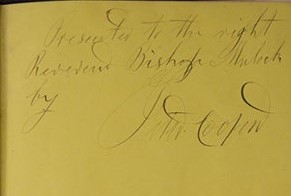 Presented to the right
Reverend Bishop Mulock
by